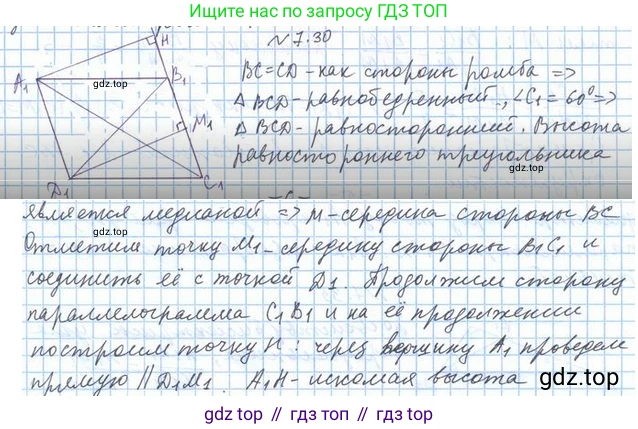 Ищите нас в поиске по фразе ГДЗ ТОП
H
№7.30
A1
B1
gdz.top
M1
D1
C1
BC=CD-как стороны ромба =>
Δ BCD-равнобедренный, ∠C1=60°=>
Δ BCD-равносторонний. Высота
равностороннего треугольника
является медианой => M-середина стороны BC
gdz.top
Отметим точку M1-середину стороны B1C1 и
соединить её с точкой D1. Продолжим сторону
параллелограмма C1B1 и на её продолжении
построим точку H: через вершину A1 проведем
прямую || D1M1. A1H-искомая высота
gdz.top
gdz.top // гдз.топ // гдз.top